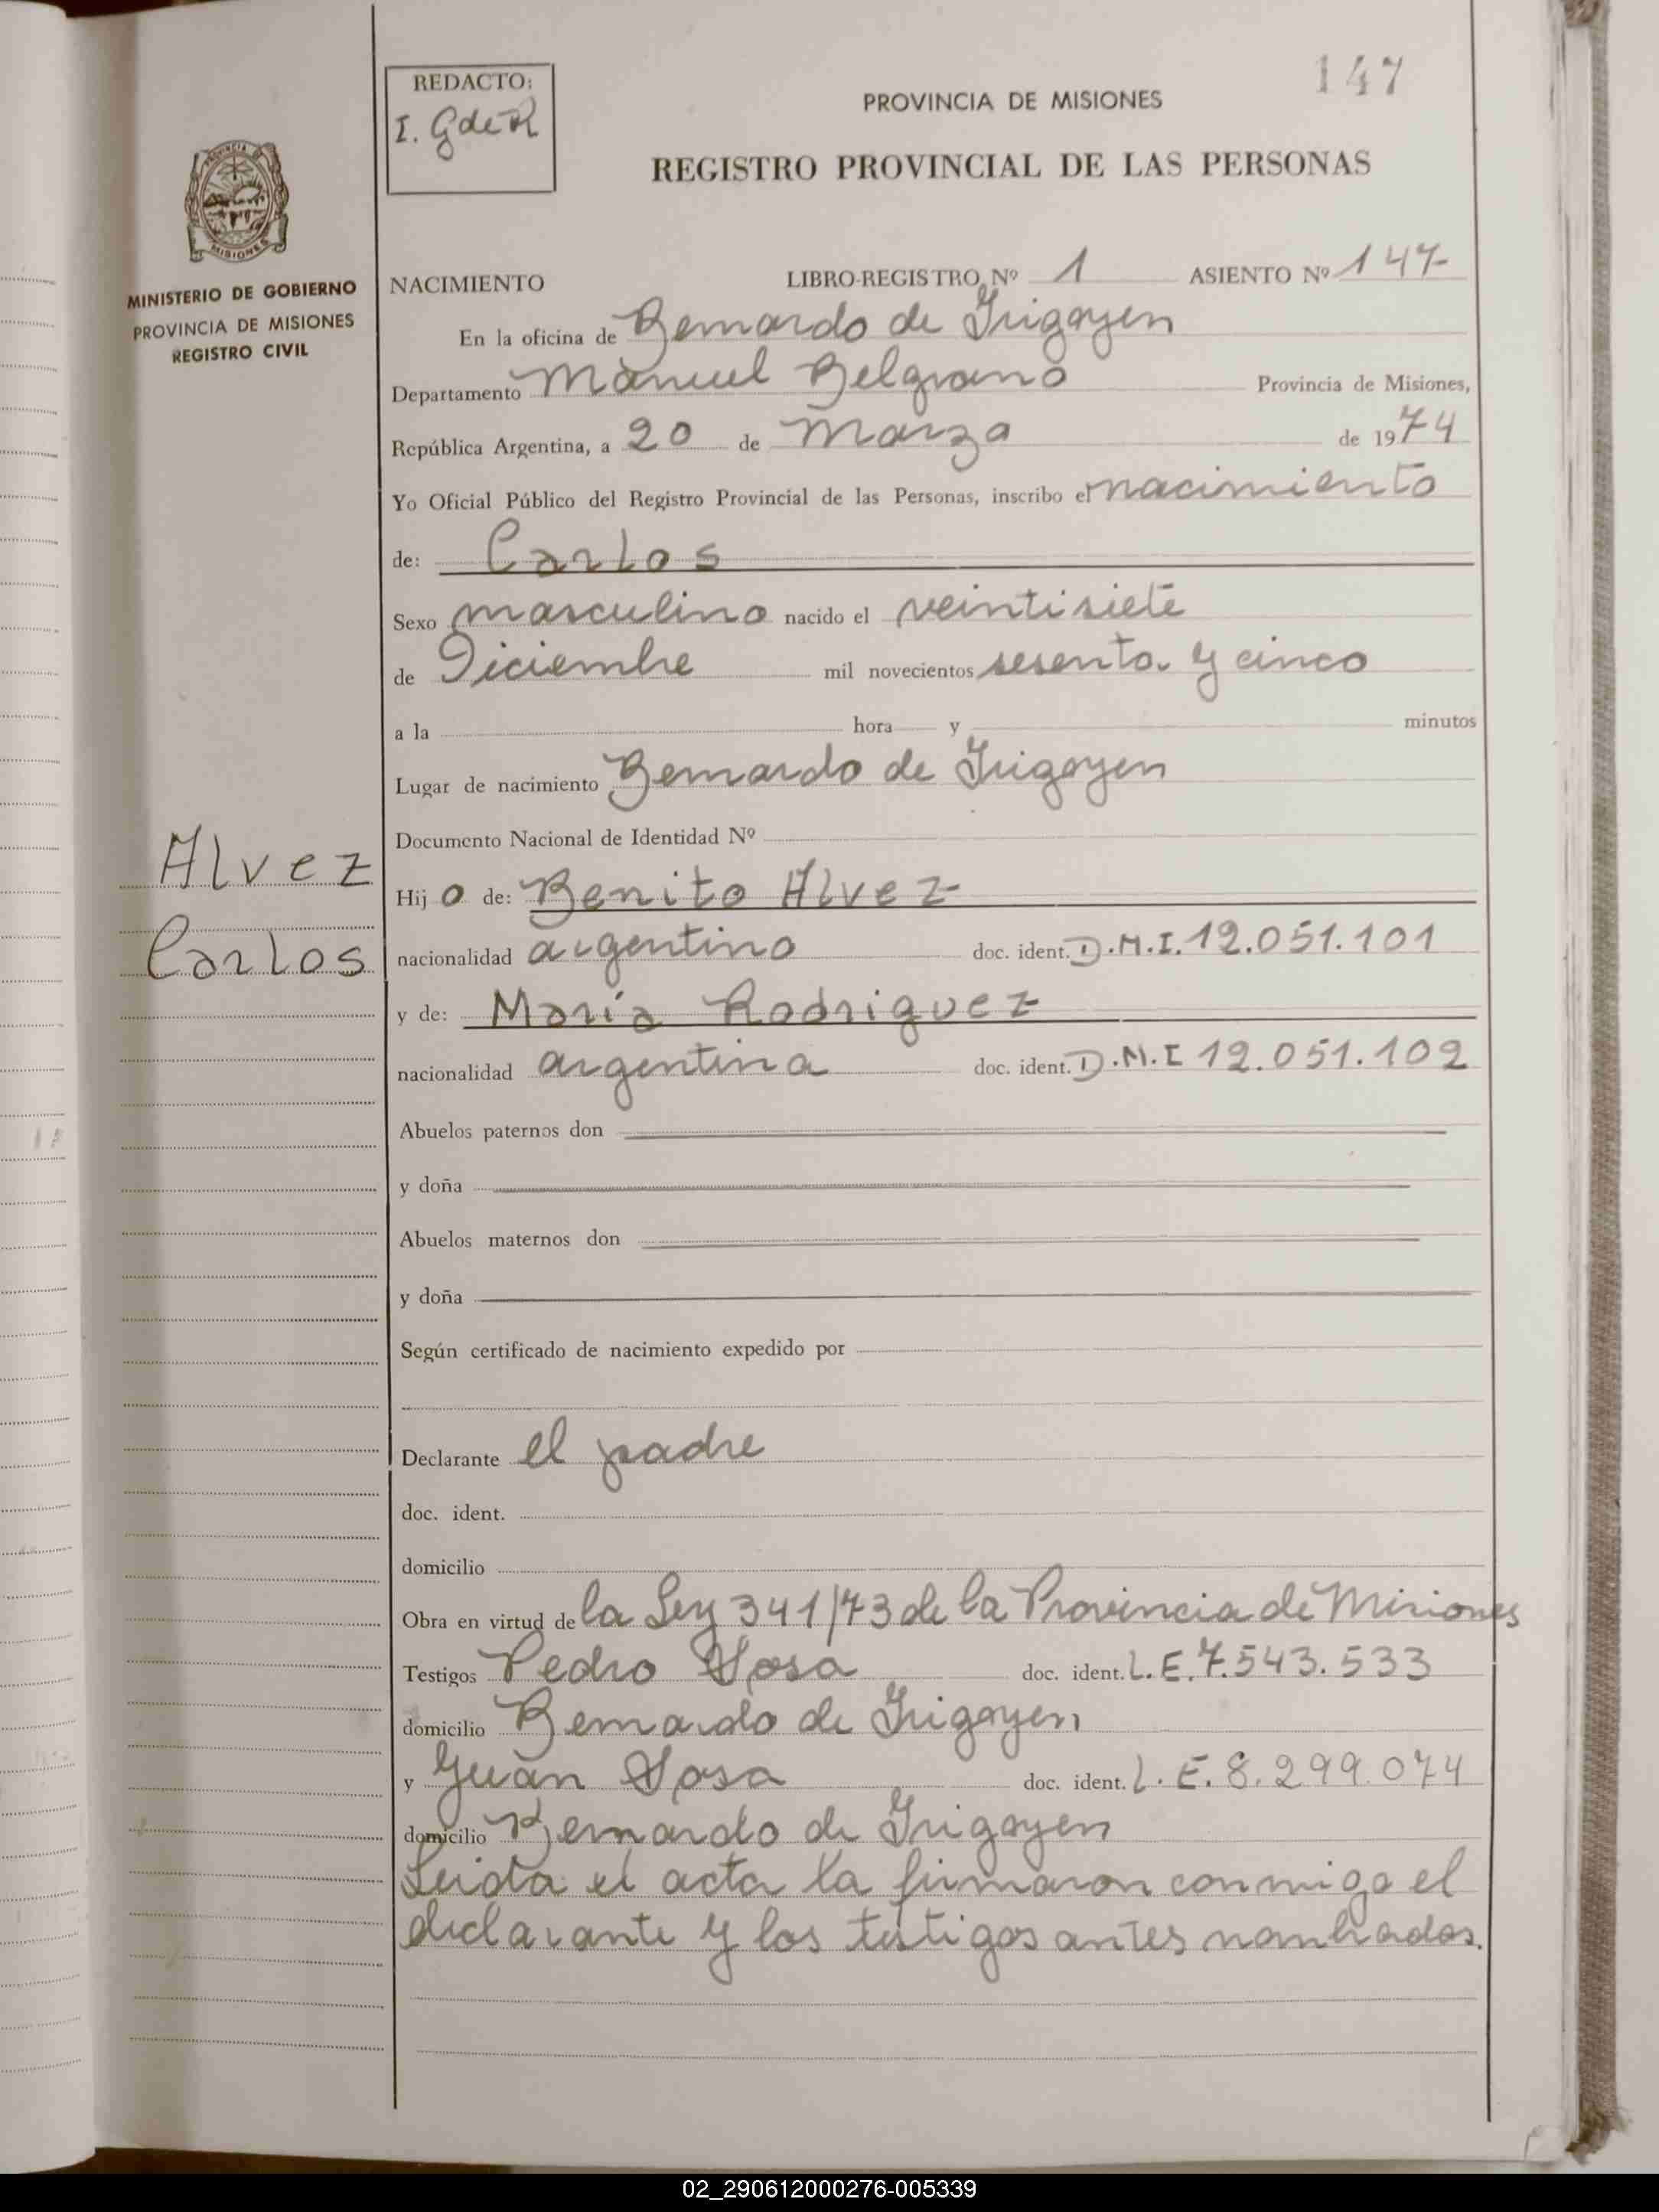 147
REDACTO:
I. GdeR
PROVINCIA DE MISIONES
REGISTRO PROVINCIAL DE LAS PERSONAS
MISIONES
MINISTERIO DE GOBIERNO
PROVINCIA DE MISIONES
REGISTRO CIVIL
NACIMIENTO LIBRO-REGISTRO Nº 1 ASIENTO Nº 147-
En la oficina de Bernardo de Irigoyen
Departamento Manuel Belgrano Provincia de Misiones,
República Argentina, a 20 de Marzo de 1974
Yo Oficial Público del Registro Provincial de las Personas, inscribo el nacimiento
de: Carlos
Sexo masculino nacido el veintisiete
de Diciembre mil novecientos sesenta y cinco
a la hora y minutos
Lugar de nacimiento Bernardo de Irigoyen
Documento Nacional de Identidad Nº
Alvez
Carlos
Hijo de: Benito Alvez
nacionalidad argentino doc. ident. D.M.I. 12.051.101
y de: María Rodriguez
nacionalidad argentina doc. ident. D.M.I 12.051.102
Abuelos paternos don
y doña
Abuelos maternos don
y doña
Según certificado de nacimiento expedido por
Declarante el padre
doc. ident.
domicilio
Obra en virtud de la Ley 341/73 de la Provincia de Misiones
Testigos Pedro Sosa doc. ident. L.E. 7.543.533
domicilio Bernardo de Irigoyen
y Juan Sosa doc. ident. L.E. 8.299.074
domicilio Bernardo de Irigoyen
Leida el acta la firmaron conmigo el
declarante y los testigos antes nombrados.
02_290612000276-005339